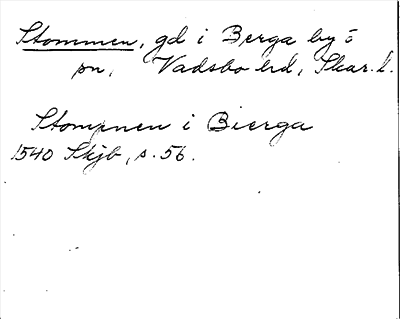 Stommen, gd i Berga by o
sn, Vadsbo hd, Skar. l.
Stompnen i Bierga
1540 Skjb, s. 56.